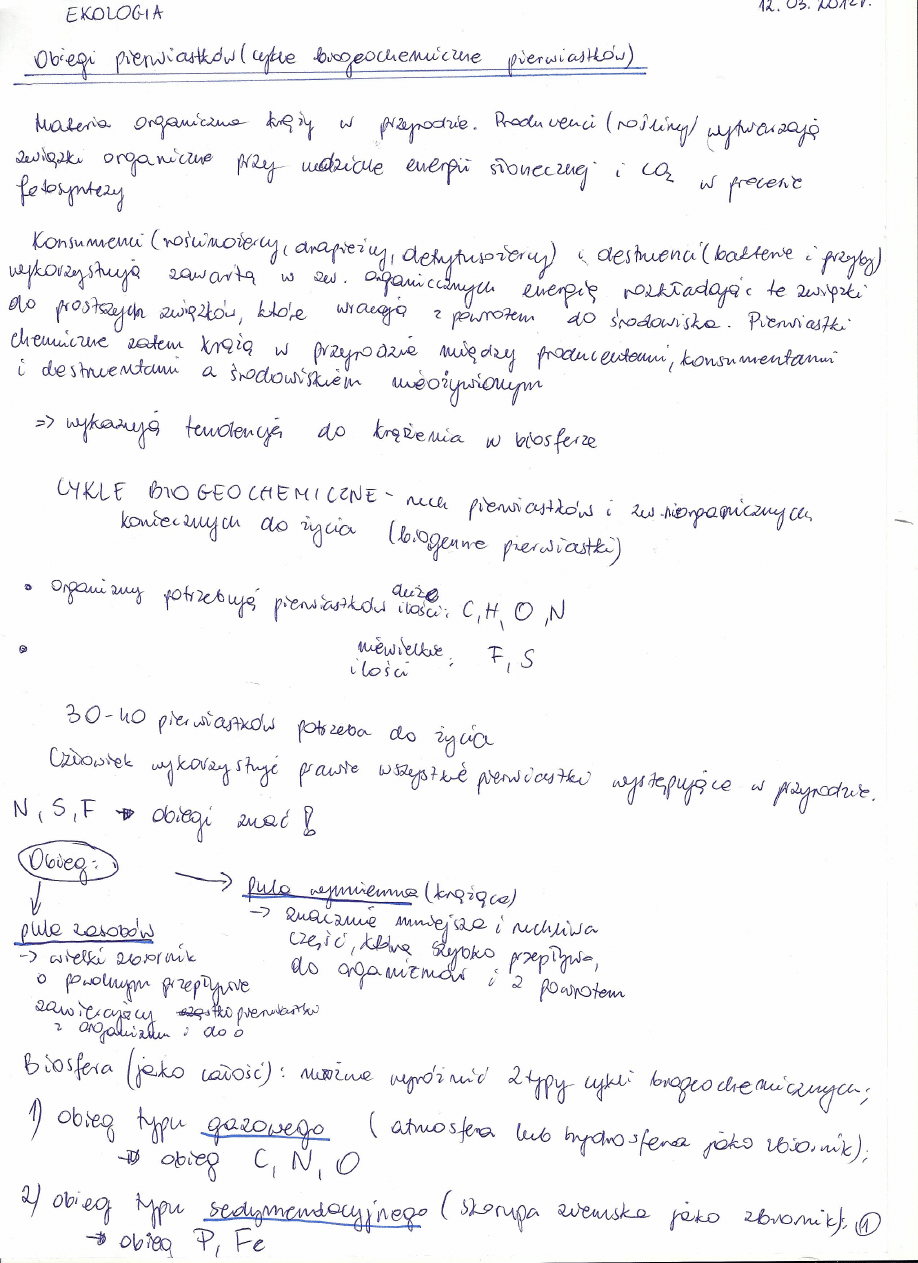 EKOLOGIA
12.03.2012r.
Obiegi pierwiastków (cykle biogeochemiczne pierwiastków)
Materia organiczna krąży w przyrodzie. Producenci (rośliny) wytwarzają
związki organiczne przy udziale energii słonecznej i CO2 w procesie
fotosyntezy
Konsumenci (roślinożercy, drapieżcy, detrytusożercy) i destruenci (bakterie i grzyby)
wykorzystują zawartą w zw. organicznych energię rozkładając te związki
do prostszych związków, które wracają z powrotem do środowiska. Pierwiastki
chemiczne zatem krążą w przyrodzie między producentami, konsumentami
i destruentami a środowiskiem nieożywionym
=> wykazują tendencję do krążenia w biosferze
CYKLE BIOGEOCHEMICZNE - ruch pierwiastków i zw. nieorganicznych
koniecznych do życia (biogenne pierwiastki)
• Organizmy potrzebują pierwiastków duże ilości: C, H, O, N
• niewielkie ilości: F, S
30-40 pierwiastków potrzeba do życia
Człowiek wykorzystuje prawie wszystkie pierwiastki występujące w przyrodzie.
N, S, F → obiegi znać !
Obieg:
→ pula wymienna (krążąca)
→ znacznie mniejsza i ruchliwa
część, która szybko przepływa,
do organizmów i z powrotem
pula zasobów
→ wielki zbiornik
o powolnym przepływie
zawierający pierwiastków
z organizm i do o
Biosfera (jako całość): można wyróżnić 2 typy cykli biogeochemicznych:
1) obieg typu gazowego (atmosfera lub hydrosfera jako zbiornik);
→ obieg C, N, O
2) obieg typu sedymentacyjnego (skorupa ziemska jako zbiornik). 1
→ obieg P, Fe